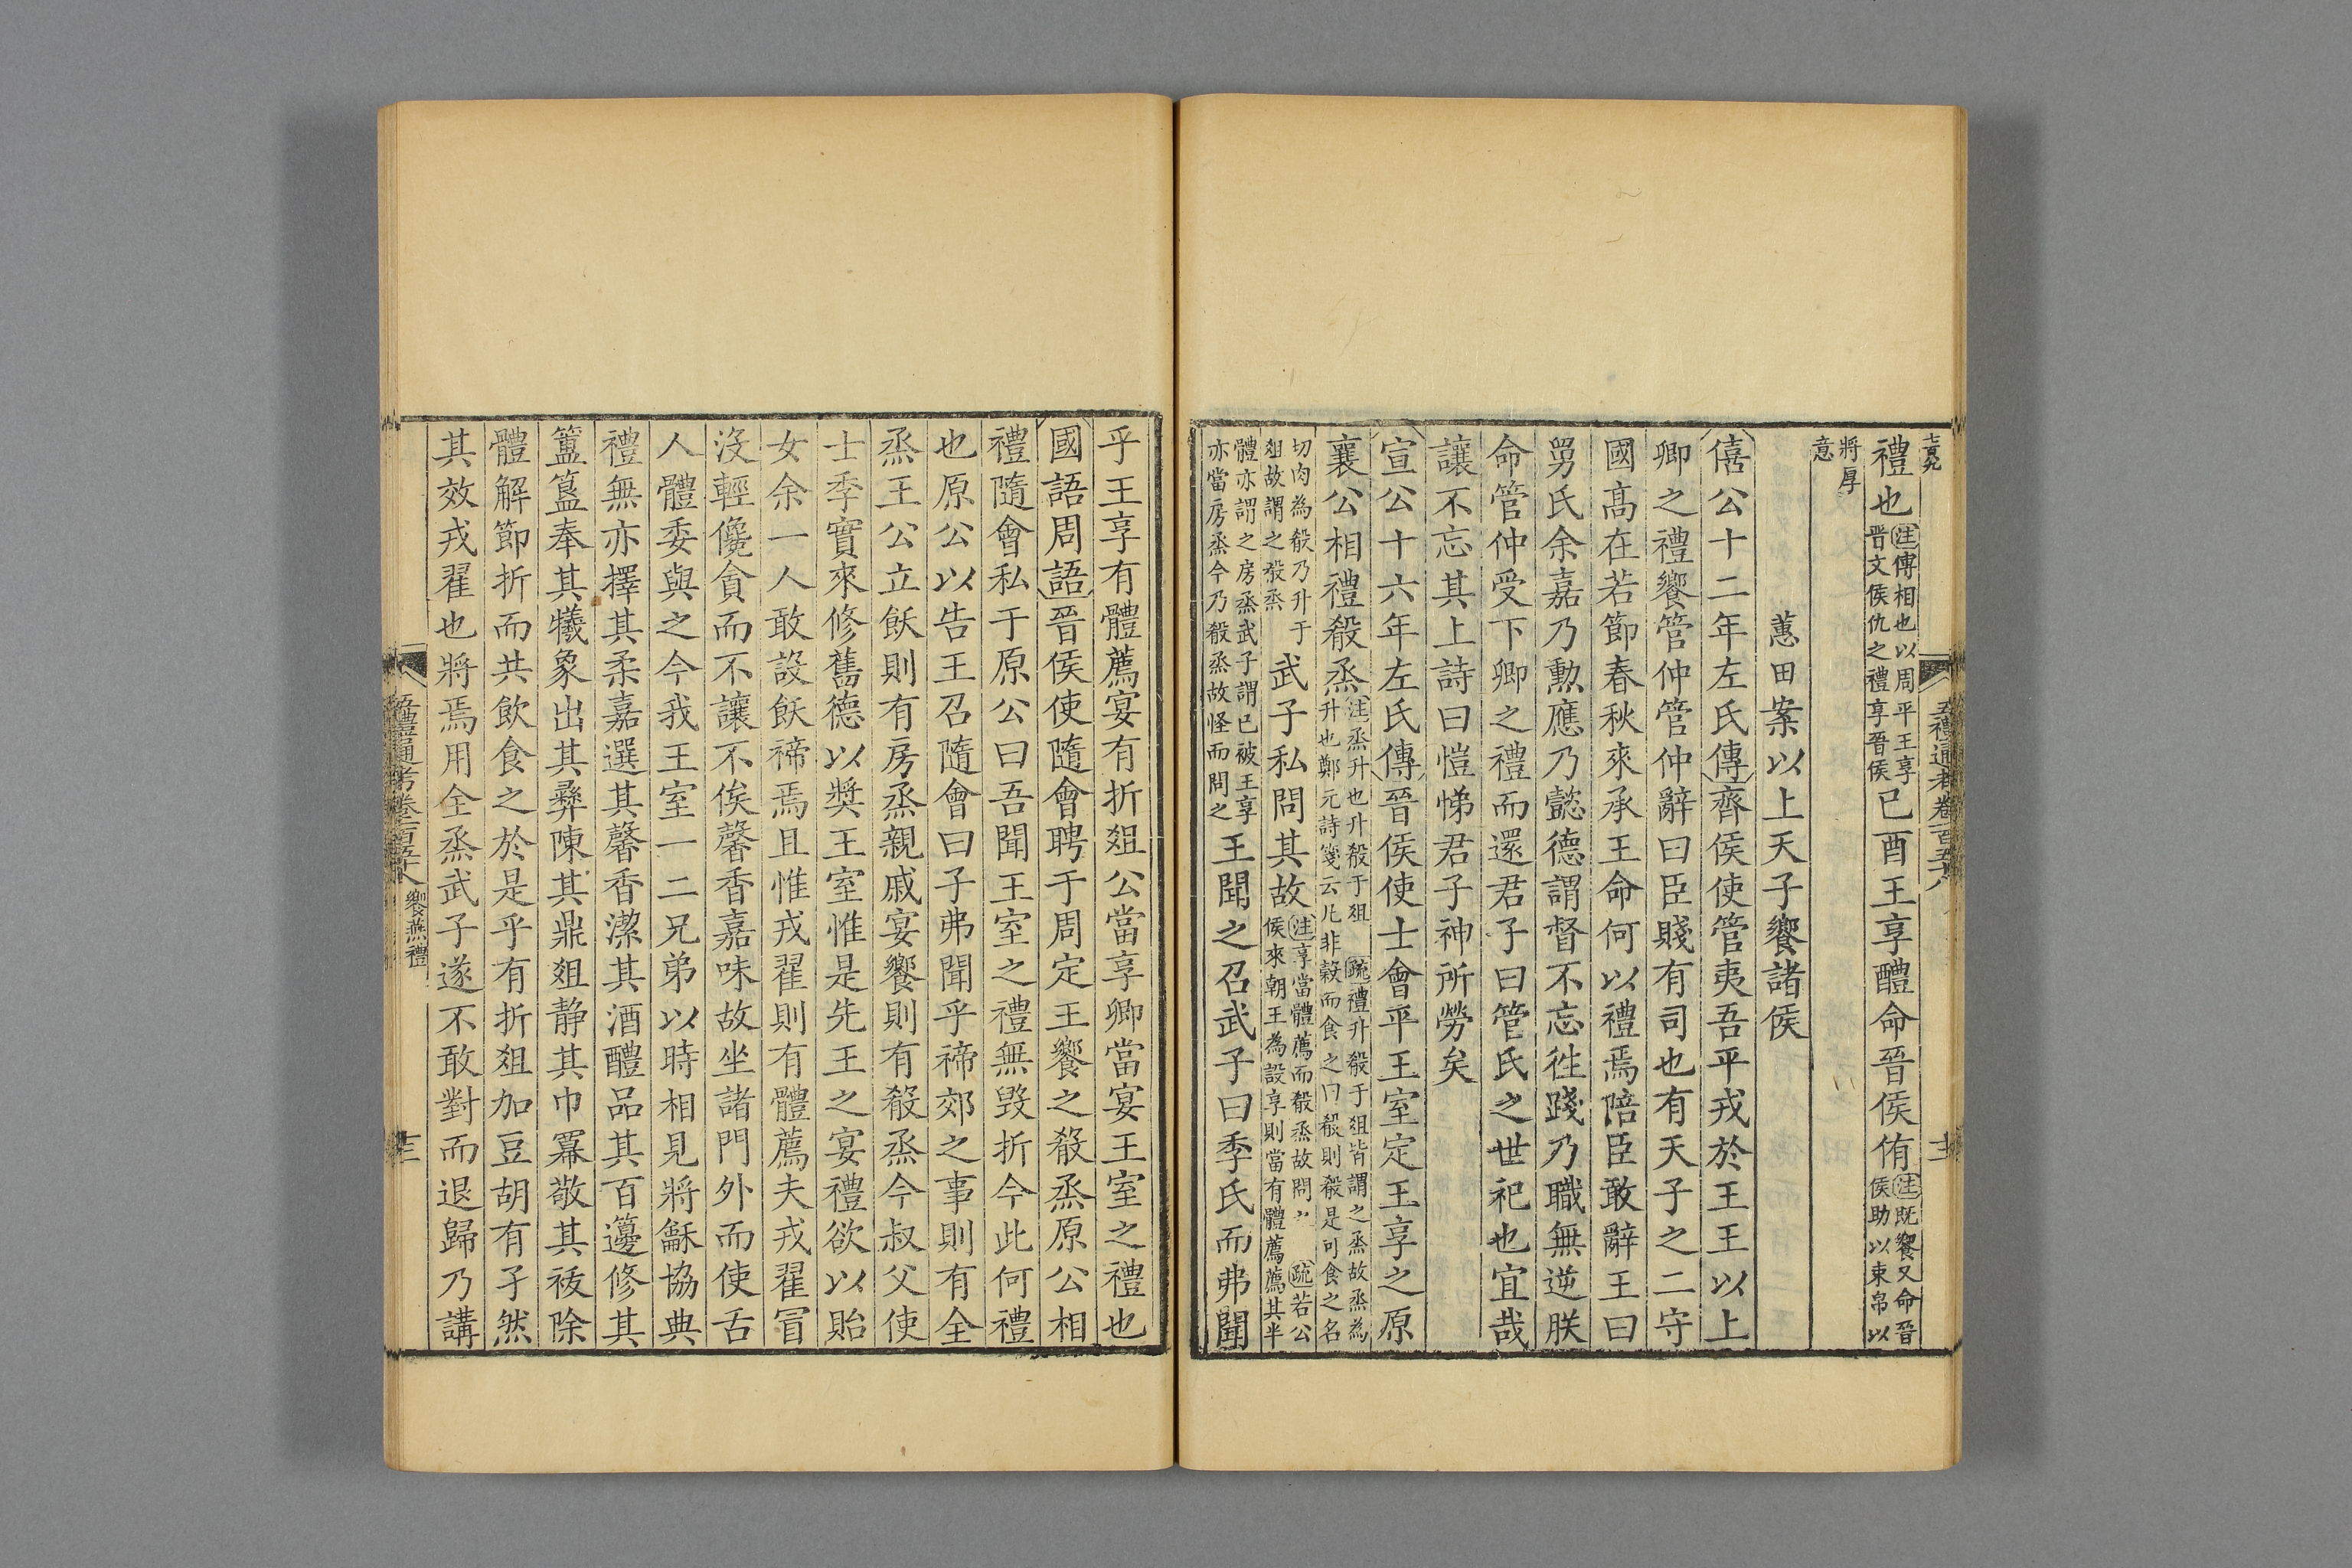 五禮通考卷一百五十八
禮也注傳相也以周平王享晉文侯仇之禮享晉侯己酉王享醴命晉侯侑注既饗又命晉侯助以束帛以
將厚意
蕙田案以上天子饗諸侯
僖公十二年左氏傳齊侯使管夷吾平戎於王王以上
卿之禮饗管仲管仲辭曰臣賤有司也有天子之二守
國高在若節春秋來承王命何以禮焉陪臣敢辭王曰
舅氏余嘉乃勲應乃懿德謂督不忘徃踐乃職無逆朕
命管仲受下卿之禮而還君子曰管氏之世祀也宜哉
讓不忘其上詩曰愷悌君子神所勞矣
宣公十六年左氏傳晉侯使士會平王室定王享之原
襄公相禮殽烝注烝升也升殽于俎 疏禮升殽于俎皆謂之烝故烝為升也鄭元詩箋云凡非穀而食之曰殽則殽是可食之名
切肉為殽乃升于俎故謂之殽烝武子私問其故注享當體薦而殽烝故問之 疏若公侯來朝王為設享則當有體薦薦其半
體亦謂之房烝武子謂已被王享亦當房烝今乃殽烝故怪而問之王聞之召武子曰季氏而弗聞
乎王享有體薦宴有折俎公當享卿當宴王室之禮也
國語周語晉侯使隨會聘于周定王饗之殽烝原公相
禮隨會私于原公曰吾聞王室之禮無毀折今此何禮
也原公以告王召隨會曰子弗聞乎禘郊之事則有全
烝王公立飫則有房烝親戚宴饗則有殽烝今叔父使
士季實來修舊德以獎王室惟是先王之宴禮欲以貽
女余一人敢設飫禘焉且惟戎翟則有體薦夫戎翟冒
沒輕儳貪而不讓不俟馨香嘉味故坐諸門外而使舌
人體委與之今我王室一二兄弟以時相見將龢協典
禮無亦擇其柔嘉選其馨香潔其酒醴品其百籩修其
簠簋奉其犧象出其彝陳其鼎俎静其巾冪敬其祓除
體解節折而共飲食之於是乎有折俎加豆胡有孑然
其效戎翟也將焉用全烝武子遂不敢對而退歸乃講
五禮通考卷一百五十八 饗燕禮